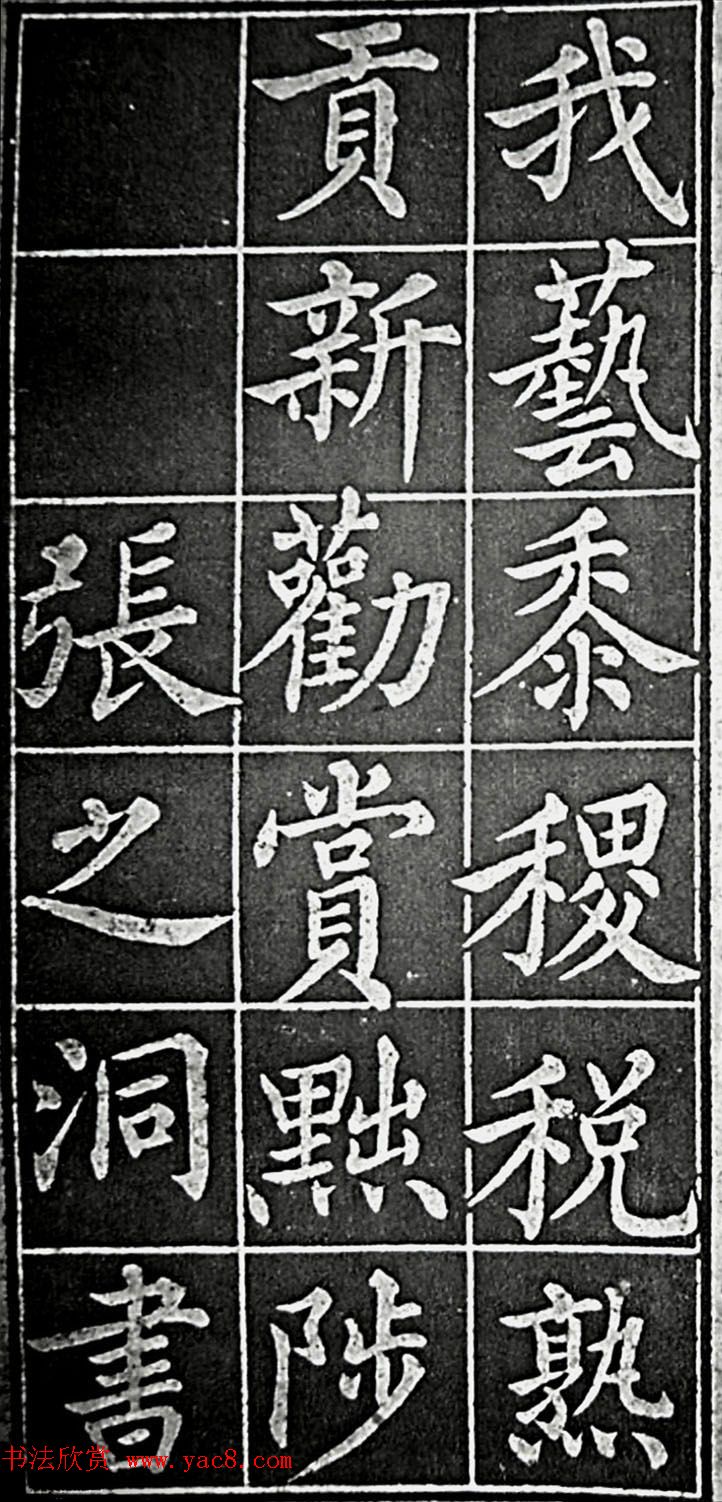 我藝黍稷稅熟
貢新勸賞黜陟
張之洞書
书法欣赏 www.yac8.com